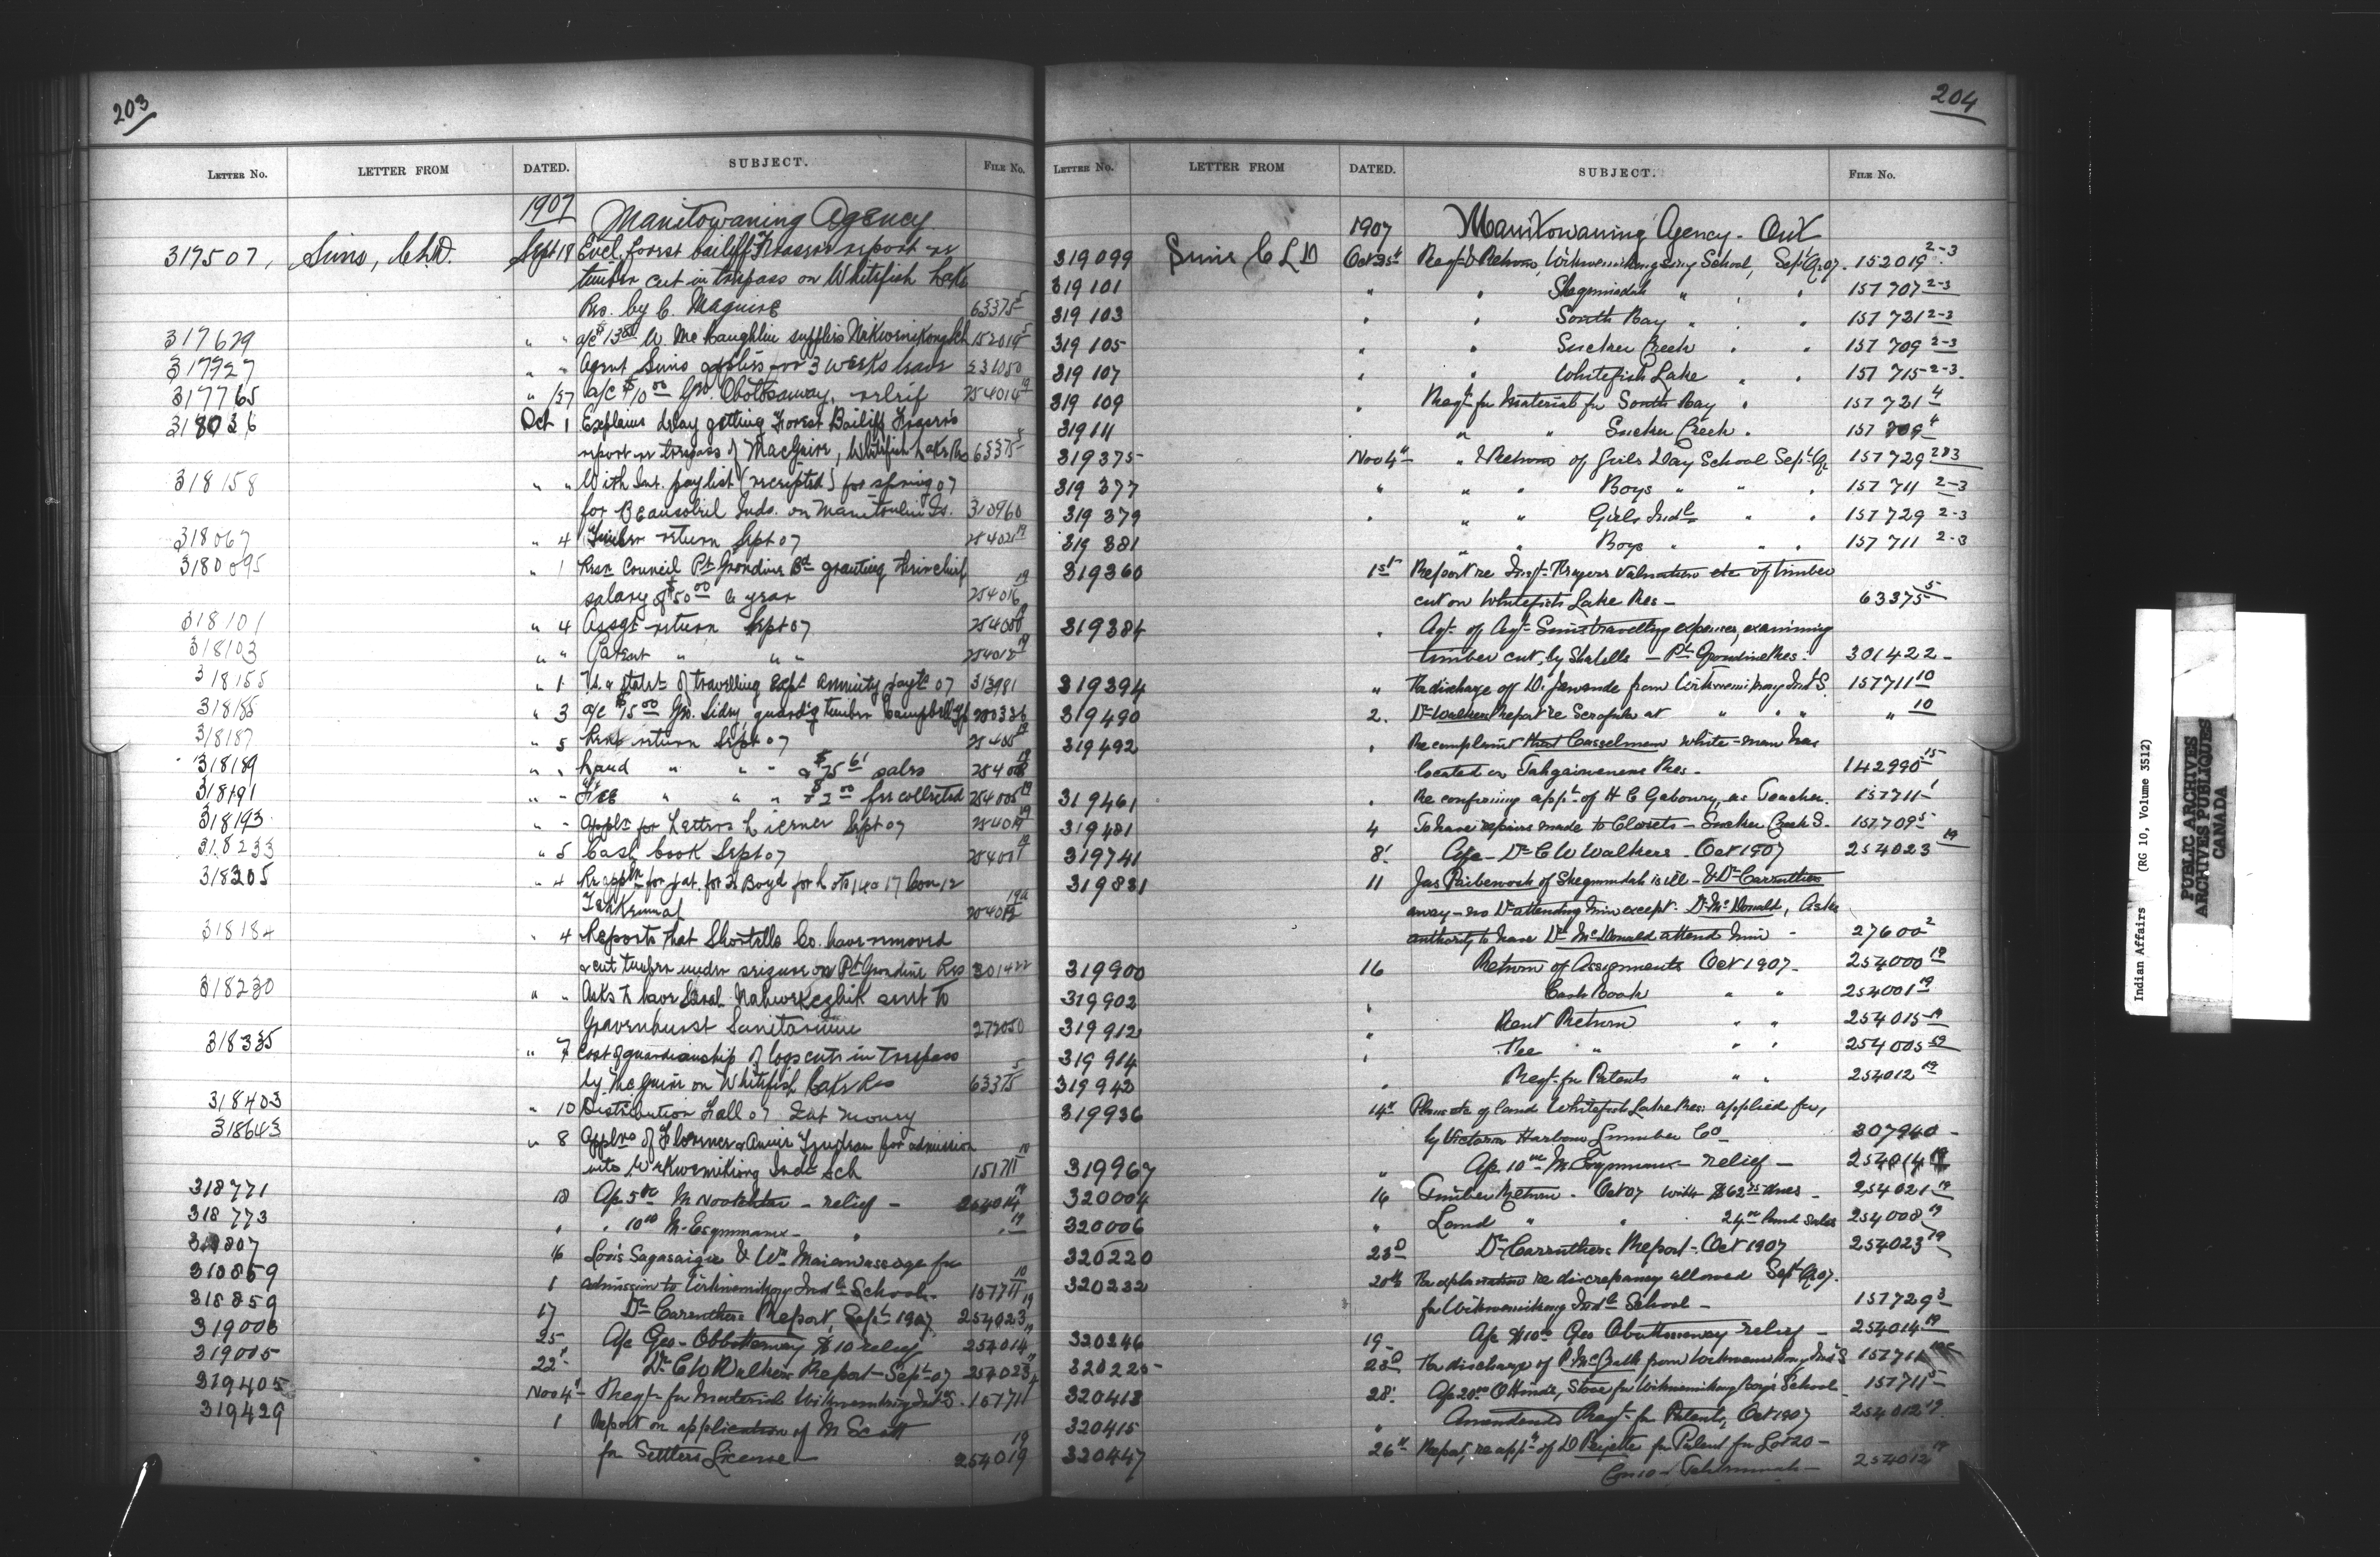 203
LETTER No. LETTER FROM DATED. SUBJECT. FILE No.
1907 Manitowaning Agency
317507, Sims, C.L.D. Sept 18 Encl. forest bailiff Frasers report re
timber cut in trespass on Whitefish Lake
Res. by C. Maguire 63375-5
317629 " " a/c $13 W. McLaughlin supplies Wikwemikong Sch 152019 5
317727 " " Agent Sims applies for 3 weeks leave
317765 " 27 a/c $10 00 Geo. Obotossaway, relief 254014 19
318036 Oct 1 Explains delay getting Forest Bailiff Frasers
report re trespass of MacGuire, Whitefish Lake Res 63375 5
318158 " " With Int. paylist (receipted) for spring 07
for Beausoleil Inds. on Manitoulin Is. 310960
318067 " 4 Timber return Sept 07 254021 19
3180095 " 1 Resn Council Pt Grondine Bd granting their chief
salary of $50 00 a year 254016 19
318101 " 4 Assgt return Sept 07 254000 19
318103 " " Patent " " " 254012 19
318155 " 1 statet of travelling Exps annuity payts 07 313981
318185 " 3 a/c $15 00 Geo. Sidey, guardg timber Campbell Tp 280336
318187 " 5 Rent return Sept 07
318189 " " Land " " " $75 61 sales 254008 19
318191 " - Fee " " " $2 00 fee collected 254005 19
318193 " - Appln for Settlers License Sept 07 254019 19
318233 " 5 Cash book Sept 07 254001 19
318205 " 4 Re appln for pat. for H Boyd for Lots 16 & 17 Con 12
Tehkummah 254012 19a
318184 " 4 Reports that Shortells Co. have removed
& cut timber under seizure on Pt Grondine Res 301422
318230 " " Asks to have Sarah Nahwekezhik sent to
Gravenhurst Sanitarium 272050
318335 " 7 Cost of guardianship of logs cut in trespass
by McGuire on Whitefish Lake Res 63375 5
318403 " 10 Distribution Fall 07 Int money
318643 " 8 Applns of Florence & Annie for admission
into Wikwemikong Indl Sch 157711 10
318771 18 A/c 5 00 M Nookehtar - relief - 254014 19
318773 " " 10 00 M. Esquimaux - " " 19
318807 16 Lois Sagasaigie & Wm Maiamassoge for
318859 1 admission to Wikwemikong Indl School. 157711 10
318859 17 Dr Carruthers Report, Sept 1907 254023 19
319003 25 A/c Geo - Obbottossway $10 relief 254014 19
319005 22" Dr C W Walkers Report - Sept 07 254023 19
319405 Nov 4" Reqt for Material Wikwemikong Indl S. 157711 4
319429 1 Report on application of M Scott
for Settlers License - 254019 19
204
LETTER No. LETTER FROM DATED. SUBJECT. FILE No.
1907 Manitowaning Agency - Ont
319099 Sims C L D Oct 25th Reqt & Returns, Wikwemikongsing School, Sept Qr 07. 152019 2-3
319101 " " Shegumiadah " " " 157707 2-3
319103 " " South Bay " " 157721 2-3
319105 " " Sucker Creek " " 157709 2-3
319107 " " Whitefish Lake " " 157715 2-3
319109 " Reqt for Material for South Bay " 157721 4
319111 " " " Sucker Creek " 157709 4
319375 Nov 4th " & Returns of Girls Day School Sept Qr 157729 2&3
319377 " " " Boys " " " 157711 2-3
319379 " " " Girls Indl " " 157729 2-3
319381 " " Boys " " " 157711 2-3
319360 1st Report re Inspt Frasers Valuation etc of timber
cut on Whitefish Lake Res - 63375 5
319384 " Agt. of Agt Sims travelling expenses, examining
timber cut, by Shatells - Pt Grondine Res. 301422 -
319394 " Re discharge of W. Jawande from Wikwemikong Indl S. 157711 10
319490 2. Dr Walkers Report re Scrofula at " " " " 10
319492 " Re complaint that Casselman white-man has
located on Tahgaiwenene Res - 142990 15
319461 " Re confirming appt of H C Gaboury, as Teacher. 157711 1
319481 4 To have repairs made to Closets - Sucker Creek S. 157709 5
319741 8' A/c - Dr C W Walkers - Oct 1907 254023 19
319831 11 Jas Paibewosh of Shegumndah is ill - & Dr Carruthers
away - no Dr attending him except Dr McDonald, Asks
authority to have Dr McDonald attend him - 27600 2
319900 16 Return of Assignments Oct 1907 - 254000 19
319902 Cash Book " " 254001 19
319912 " Rent Return " " 254015 19
319914 " Fee " " " 254005 19
319942 " Reqt for Patents " " 254012 19
319936 14th Plans etc of land Whitefish Lake Res: applied for,
by Victoria Harbour Lumber Co - 307940 -
319967 " A/c 10 00 M Esquimaux - relief - 254014 19
320004 16 Timber Return - Oct 07 with $62 75 dues - 254021 19
320006 " Land " " 24 00 land sales 254008 19
320220 23d Dr Carruthers Report - Oct 1907 254023 19
320232 20th Re explanation re discrepancy allowed Sept Qr 07.
for Wikwemikong Indl School - 157729 3
320246 19 - A/c $10 00 Geo Obottossway relief - 254014 19
320225 23d Re discharge of P. McGrath from Wikwemikong Indl S 157711
320413 28' A/c 20 00 O Hinds, Stove for Wikwemikong Boys School 157711 5
320415 " Amended Reqt for Patents, Oct 1907 254012 19
320447 26th Report, re appt of D Peyette for Patent for Lot 20 -
Con 10 - Tehkummah - 254012 19
Indian Affairs (RG 10, Volume 3512)
PUBLIC ARCHIVES
ARCHIVES PUBLIQUES
CANADA